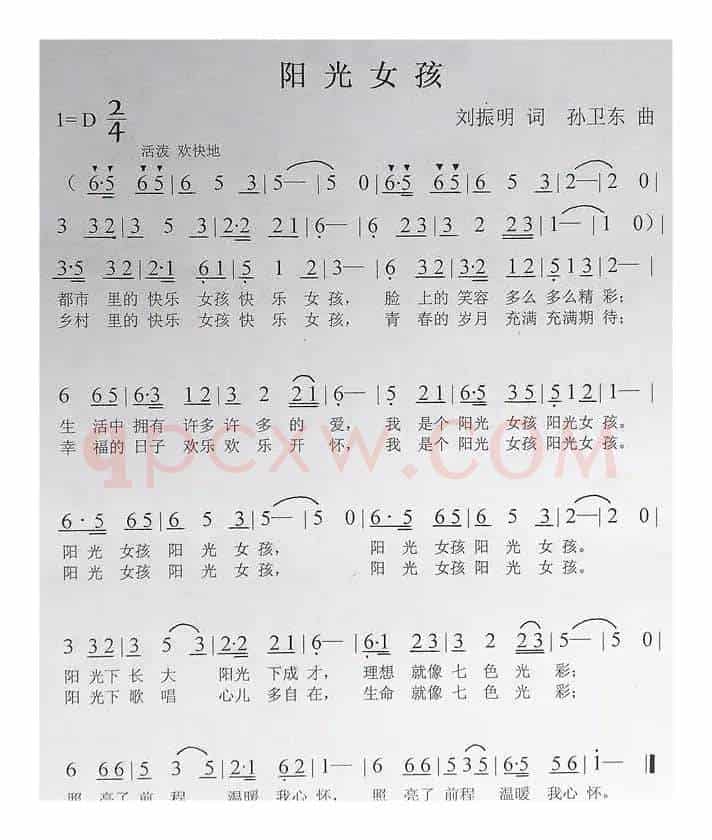 阳光女孩
1=D 2/4
刘振明 词 孙卫东 曲
活泼 欢快地
( 6·5 6 5 | 6 5 3 | 5— | 5 0 | 6·5 6 5 | 6 5 3 | 2— | 2 0 |
3 3 2 | 3 5 3 | 2·2 2 1 | 6— | 6·1 6 2 | 3 2 2 3 | 1— | 1 0 ) |
3·5 3 2 | 2·1 6 1 | 5 1 2 | 3— | 6 6 5 | 3·2 1 2 | 5 1 3 | 2— |
都市 里的 快乐 女孩 快 乐 女 孩, 脸 上的 笑容 多么 多么精 彩;
乡村 里的 快乐 女孩 快 乐 女 孩, 青 春的 岁月 充满 充满期 待;
6 6 5 | 6·3 1 2 | 3 2 2 1 | 6— | 5 2 1 | 6·5 3 5 | 5 1 2 | 1— |
生 活中 拥有 许多 许 多 的 爱, 我 是个 阳光 女孩 阳光女 孩。
幸 福的 日子 欢乐 欢 乐 开 怀, 我 是个 阳光 女孩 阳光女 孩。
qpcxw.com
6·5 6 5 | 6 5 3 | 5— | 5 0 | 6·5 6 5 | 6 5 3 | 2— | 2 0 |
阳 光 女孩 阳 光 女 孩, 阳 光 女孩 阳 光 女 孩。
阳 光 女孩 阳 光 女 孩, 阳 光 女孩 阳 光 女 孩。
3 3 2 | 3 5 3 | 2·2 2 1 | 6— | 6·1 6 2 | 3 2 2 3 | 5— | 5 0 |
阳 光下 长 大 阳光 下成 才, 理想 就像 七 色 光 彩;
阳 光下 歌 唱 心儿 多自 在, 生命 就像 七 色 光 彩;
6 6 6 | 5 3 5 | 2·1 6 2 | 1— | 6 6 6 | 5 3 5 | 6·5 5 6 | i— ‖
照 亮了 前 程 温暖 我心 怀, 照 亮了 前程 温暖 我心 怀。